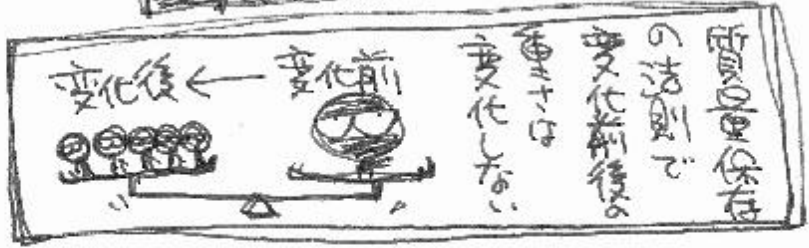 質量保存
の法則で
変化前後の
重さは
変化しない
変化前
変化後